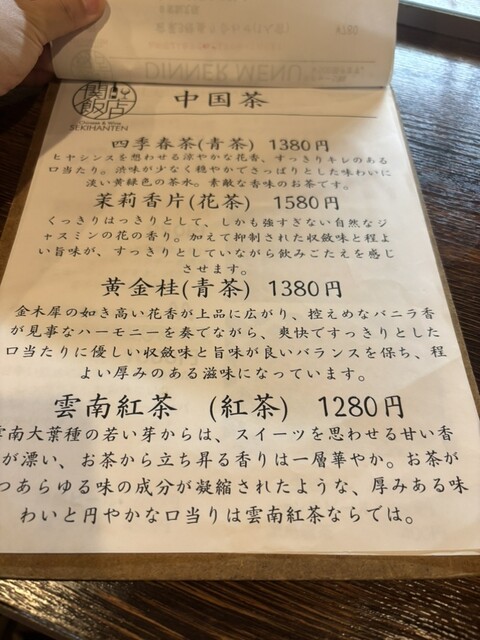 ¥780
DINNER MENU
関
飯店
Chinese & Wine
SEKIHANTEN
中国茶
四季春茶(青茶) 1380円
ヒヤシンスを想わせる涼やかな花香、すっきりキレのある
口当たり。渋味が少なく穏やかでさっぱりとした味わいに
淡い黄緑色の茶水。素敵な香味のお茶です。
茉莉香片(花茶) 1580円
くっきりはっきりとして、しかも強すぎない自然なジ
ャスミンの花の香り。加えて抑制された収斂味と程よ
い旨味が、すっきりとしていながら飲みごたえを感じ
させます。
黄金桂(青茶) 1380円
金木犀の如き高い花香が上品に広がり、控えめなバニラ香
が見事なハーモニーを奏でながら、爽快ですっきりとした
口当たりに優しい収斂味と旨味が良いバランスを保ち、程
よい厚みのある滋味になっています。
雲南紅茶 (紅茶) 1280円
雲南大葉種の若い芽からは、スイーツを思わせる甘い香
が漂い、お茶から立ち昇る香りは一層華やか。お茶が
つあらゆる味の成分が凝縮されたような、厚みある味
わいと円やかな口当りは雲南紅茶ならでは。